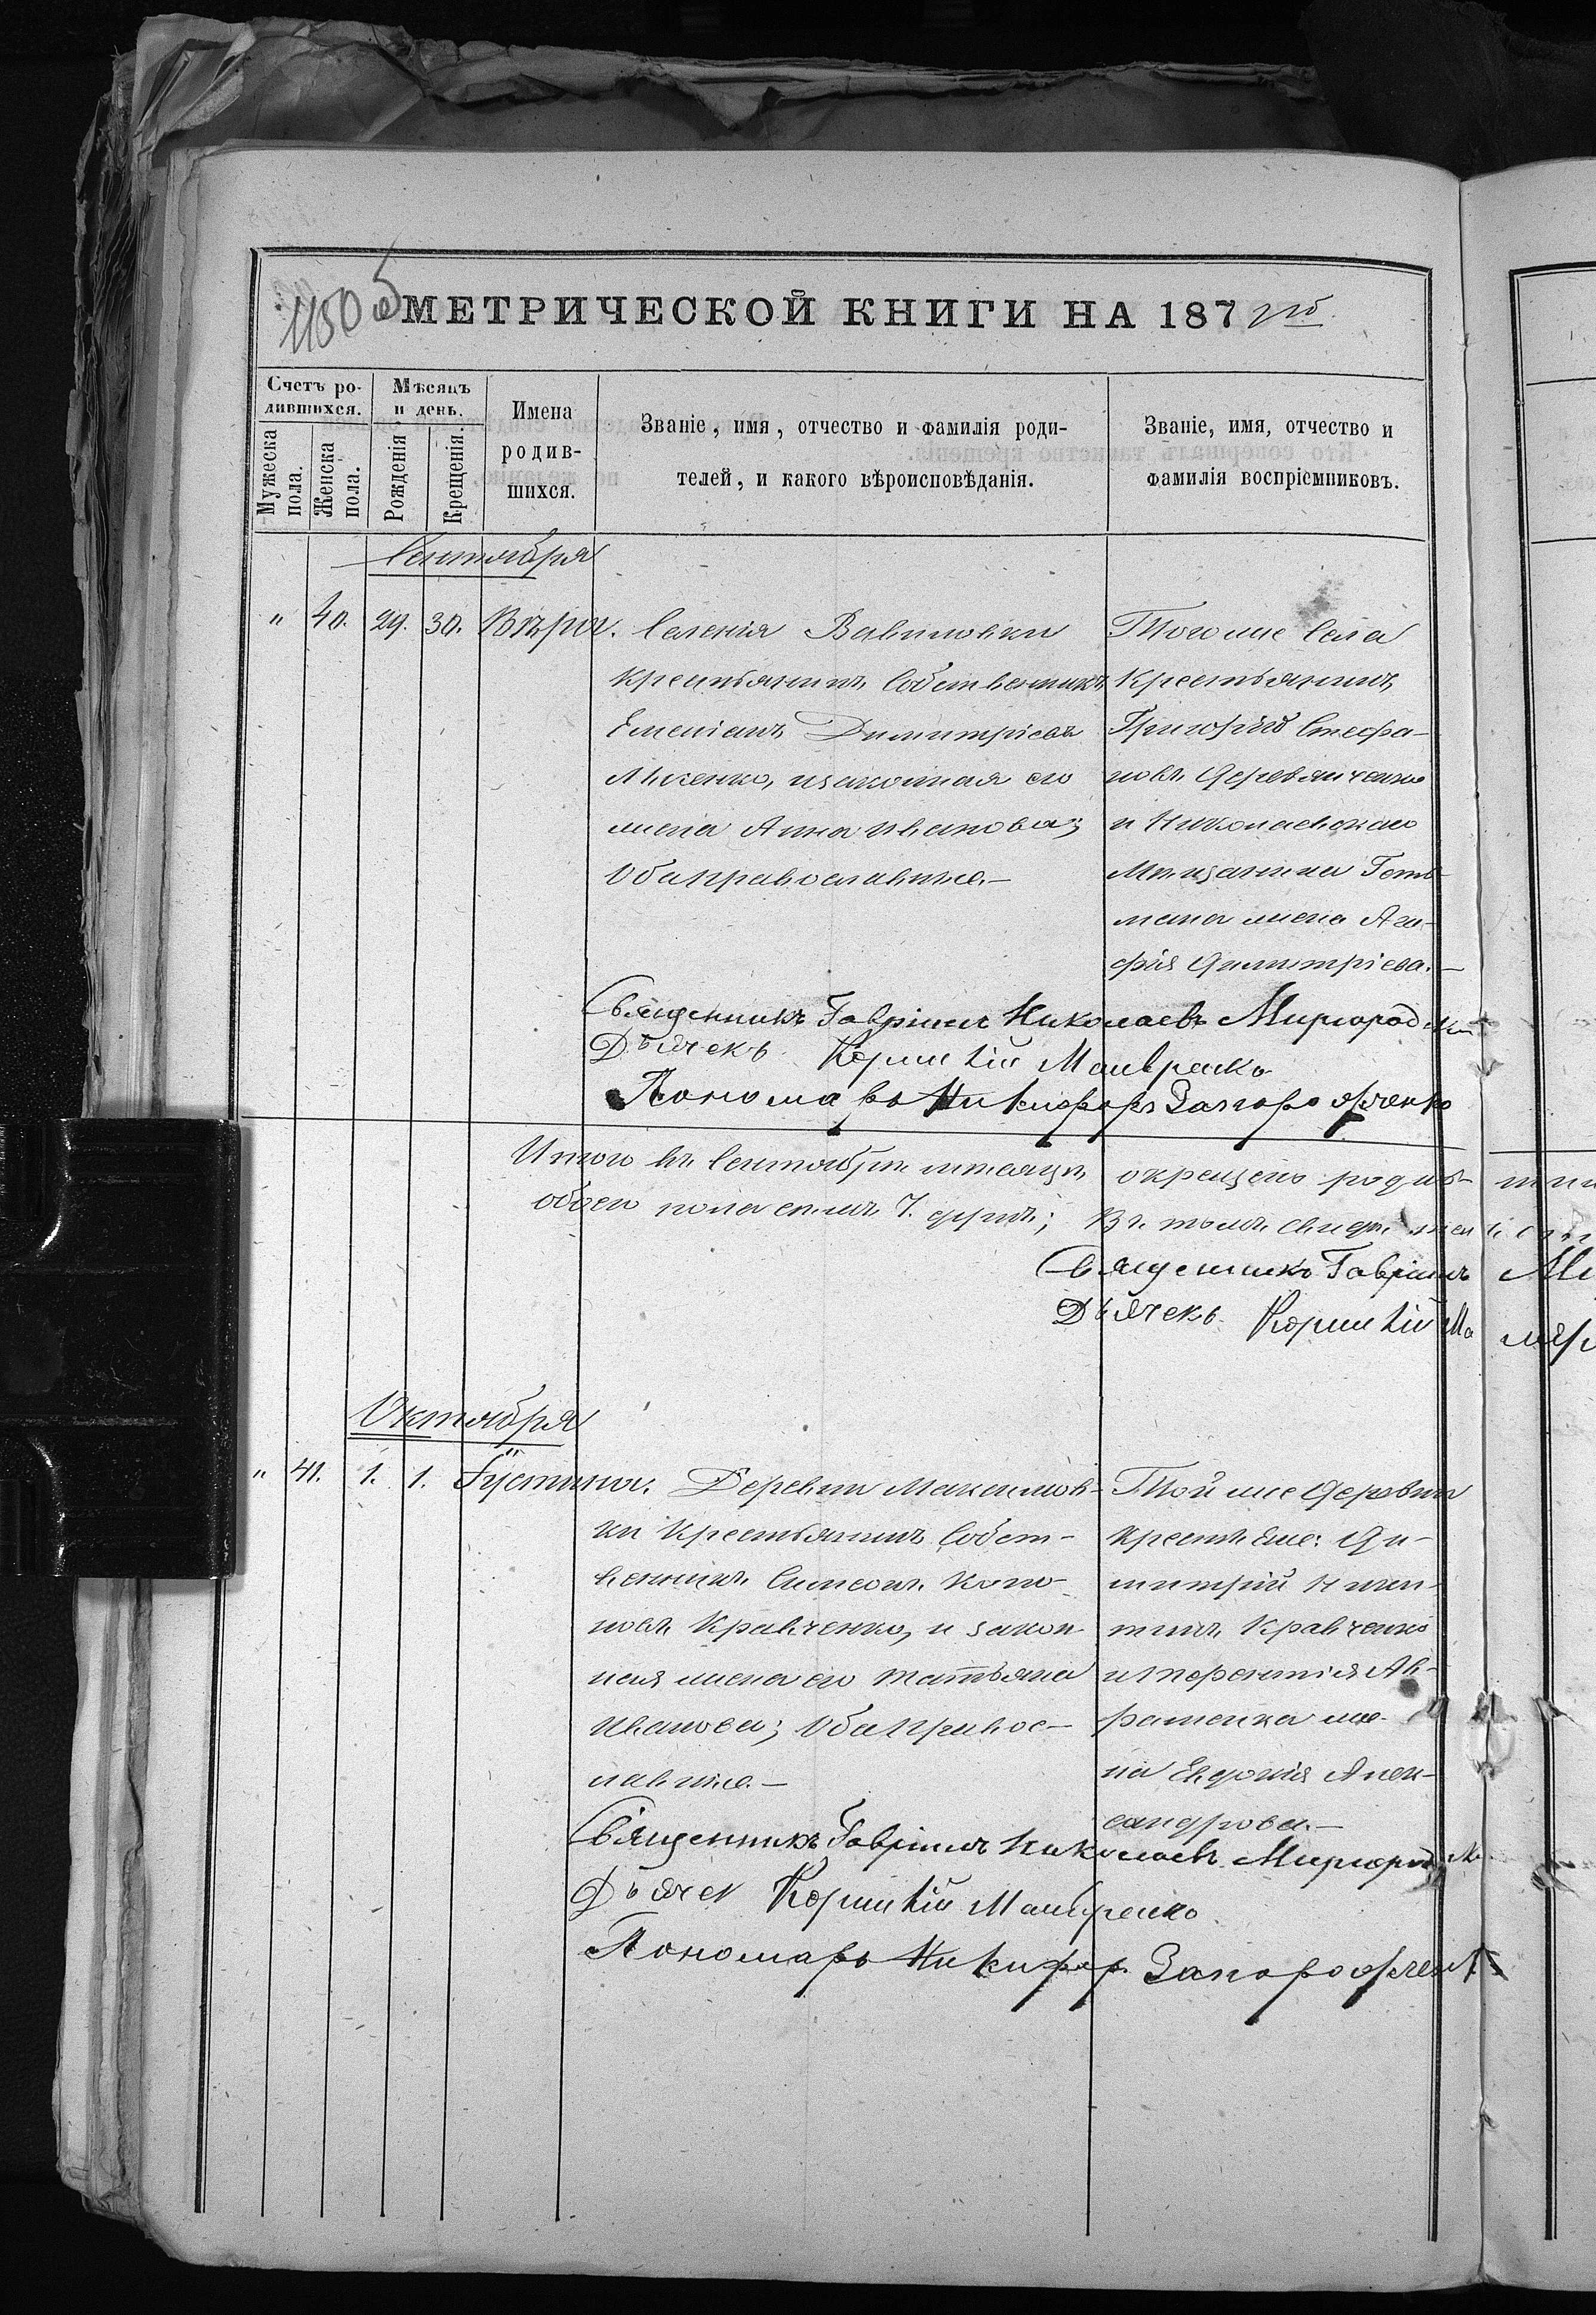 1150 об
МЕТРИЧЕСКОЙ КНИГИ НА 187
Счетъ ро-
дившихся.
Мужеска
пола.
Женска
пола.
Мѣсяцъ
и день.
Рожденія
Крещенія.
Имена
родив-
шихся.
Званіе, имя, отчество и фамилія роди-
телей, и какого вѣроисповѣданія.
Званіе, имя, отчество и
фамилія воспріемниковъ.
Сентября
" 40. 29. 30. Вѣра.
Селенія Вавиловки
Крестьянинъ Собственникъ
Емеліанъ Димитріевъ
изаконная его
жена Анна Иванова;
Оба православные.—
Тогоже Села
Крестьянинъ
Григорій Стефа-
новъ Деревянченко
и Николаевскаго
Мѣщанина Гет-
мана жена Ага-
фія Димитріева.—
Священникъ Гавріилъ Николаевъ Миргородскій
Дьячекъ Корнилій Маибренко
Пономарь Никифоръ Запорожченко
Итого въ Сентябрѣ мѣсяцѣ окрещено родив-
обоего пола семь 7. душъ; Въ томъ свидѣтел
Священникъ Гавріилъ
Дьячекъ Корнилій Ма
Октября
" 41. 1. 1. Іустина.
Деревни Максимов-
ки Крестьянинъ Собст-
венникъ Симеонъ Коно-
новъ Кравченко, и закон
ная жена его Татьяна
Иванова; Оба правос-
лавные.—
Той же Деревни
Крестьяне: Ди-
митрій Никит-
тинъ Кравченко
и Терентія Ав-
раменка же-
на Евдокія Алек-
сандрова.—
Священникъ Гавріилъ Николаевъ Миргородск
Дьячек Корнилій Маибренко
Пономарь Никифоръ Запорожченк